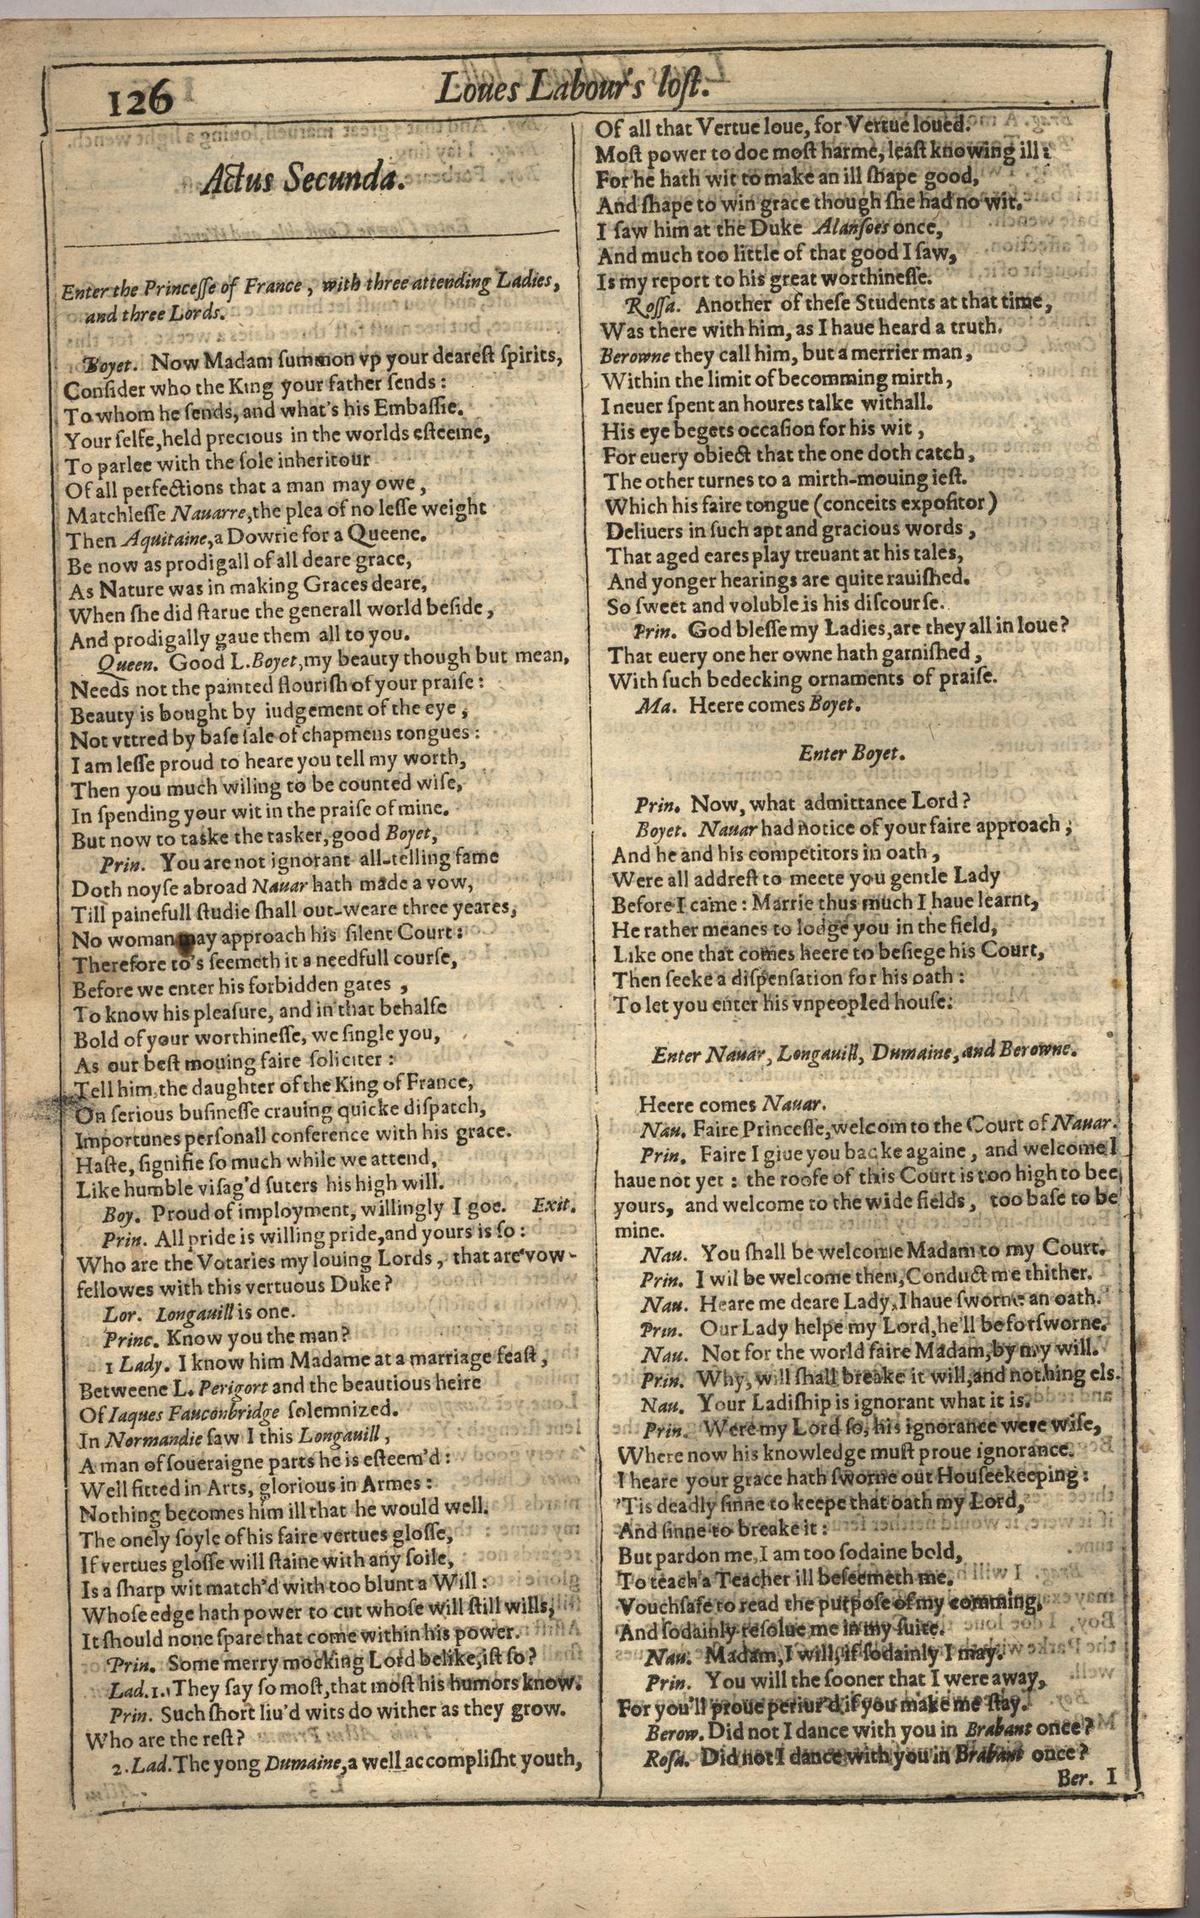 126
Loues Labour's loſt.
Actus Secunda.
Enter the Princeſſe of France, with three attending Ladies,
and three Lords.
Boyet. Now Madam ſummon vp your deareſt ſpirits,
Conſider who the King your father ſends:
To whom he ſends, and what's his Embaſſie.
Your ſelfe, held precious in the worlds eſteeme,
To parlee with the ſole inheritour
Of all perfections that a man may owe,
Matchleſſe Nauarre, the plea of no leſſe weight
Then Aquitaine, a Dowrie for a Queene.
Be now as prodigall of all deare grace,
As Nature was in making Graces deare,
When ſhe did ſtarue the generall world beſide,
And prodigally gaue them all to you.
Queen. Good L. Boyet, my beauty though but mean,
Needs not the painted flouriſh of your praiſe:
Beauty is bought by iudgement of the eye,
Not vttred by baſe ſale of chapmens tongues:
I am leſſe proud to heare you tell my worth,
Then you much wiling to be counted wiſe,
In ſpending your wit in the praiſe of mine.
But now to taske the tasker, good Boyet,
Prin. You are not ignorant all-telling fame
Doth noyſe abroad Nauar hath made a vow,
Till painefull ſtudie ſhall out-weare three yeares,
No woman may approach his ſilent Court:
Therefore to's ſeemeth it a needfull courſe,
Before we enter his forbidden gates,
To know his pleaſure, and in that behalfe
Bold of your worthineſſe, we ſingle you,
As our beſt mouing faire ſoliciter:
Tell him, the daughter of the King of France,
On ſerious buſineſſe crauing quicke diſpatch,
Importunes perſonall conference with his grace.
Haſte, ſignifie ſo much while we attend,
Like humble viſag'd ſuters his high will.
Boy. Proud of imployment, willingly I goe. Exit.
Prin. All pride is willing pride, and yours is ſo:
Who are the Votaries my louing Lords, that are vow-
fellowes with this vertuous Duke?
Lor. Longauill is one.
Princ. Know you the man?
1 Lady. I know him Madame at a marriage feaſt,
Betweene L. Perigort and the beautious heire
Of Iaques Fauconbridge ſolemnized.
In Normandie ſaw I this Longauill,
A man of ſoueraigne parts he is eſteem'd:
Well fitted in Arts, glorious in Armes:
Nothing becomes him ill that he would well.
The onely ſoyle of his faire vertues gloſſe,
If vertues gloſſe will ſtaine with any ſoile,
Is a ſharp wit match'd with too blunt a Will:
Whoſe edge hath power to cut whoſe will ſtill wills,
It ſhould none ſpare that come within his power.
Prin. Some merry mocking Lord belike, iſt ſo?
Lad.1. They ſay ſo moſt, that moſt his humors know.
Prin. Such ſhort liu'd wits do wither as they grow.
Who are the reſt?
2. Lad. The yong Dumaine, a well accompliſht youth,
Of all that Vertue loue, for Vertue loued.
Moſt power to doe moſt harme, leaſt knowing ill:
For he hath wit to make an ill ſhape good,
And ſhape to win grace though ſhe had no wit.
I ſaw him at the Duke Alanſoes once,
And much too little of that good I ſaw,
Is my report to his great worthineſſe.
Roſſa. Another of theſe Students at that time,
Was there with him, as I haue heard a truth.
Berowne they call him, but a merrier man,
Within the limit of becomming mirth,
I neuer ſpent an houres talke withall.
His eye begets occaſion for his wit,
For euery obiect that the one doth catch,
The other turnes to a mirth-mouing ieſt.
Which his faire tongue (conceits expoſitor)
Deliuers in ſuch apt and gracious words,
That aged eares play treuant at his tales,
And yonger hearings are quite rauiſhed.
So ſweet and voluble is his diſcourſe.
Prin. God bleſſe my Ladies, are they all in loue?
That euery one her owne hath garniſhed,
With ſuch bedecking ornaments of praiſe.
Ma. Heere comes Boyet.
Enter Boyet.
Prin. Now, what admittance Lord?
Boyet. Nauar had notice of your faire approach;
And he and his competitors in oath,
Were all addreſt to meete you gentle Lady
Before I came: Marrie thus much I haue learnt,
He rather meanes to lodge you in the field,
Like one that comes heere to beſiege his Court,
Then ſeeke a diſpenſation for his oath:
To let you enter his vnpeopled houſe.
Enter Nauar, Longauill, Dumaine, and Berowne.
Heere comes Nauar.
Nau. Faire Princeſſe, welcom to the Court of Nauar.
Prin. Faire I giue you backe againe, and welcome I
haue not yet: the roofe of this Court is too high to bee
yours, and welcome to the wide fields, too baſe to be
mine.
Nau. You ſhall be welcome Madam to my Court.
Prin. I wil be welcome then, Conduct me thither.
Nau. Heare me deare Lady, I haue ſworne an oath.
Prin. Our Lady helpe my Lord, he'll be forſworne.
Nau. Not for the world faire Madam, by my will.
Prin. Why, will ſhall breake it will, and nothing els.
Nau. Your Ladiſhip is ignorant what it is.
Prin. Were my Lord ſo, his ignorance were wiſe,
Where now his knowledge muſt proue ignorance.
I heare your grace hath ſworne out Houſeekeeping:
'Tis deadly ſinne to keepe that oath my Lord,
And ſinne to breake it:
But pardon me, I am too ſodaine bold,
To teach a Teacher ill beſeemeth me.
Vouchſafe to read the purpoſe of my comming,
And ſodainly reſolue me in my ſuite.
Nau. Madam, I will, if ſodainly I may.
Prin. You will the ſooner that I were away,
For you'll proue periur'd if you make me ſtay.
Berow. Did not I dance with you in Brabant once?
Roſa. Did not I dance with you in Brabant once?
Ber. I